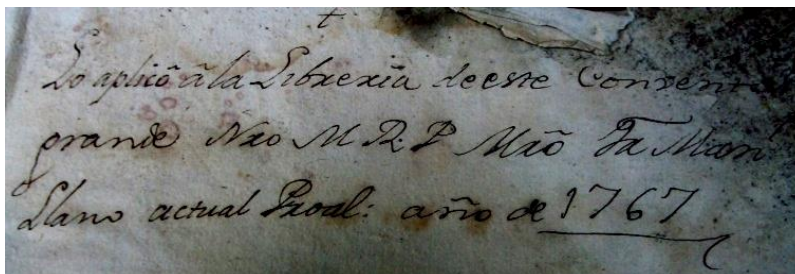 Lo aplicô â la Librexia de este Convento
grande Nxo M R. P Mxõ Fx Man
Llano actual Proal: año de 1767